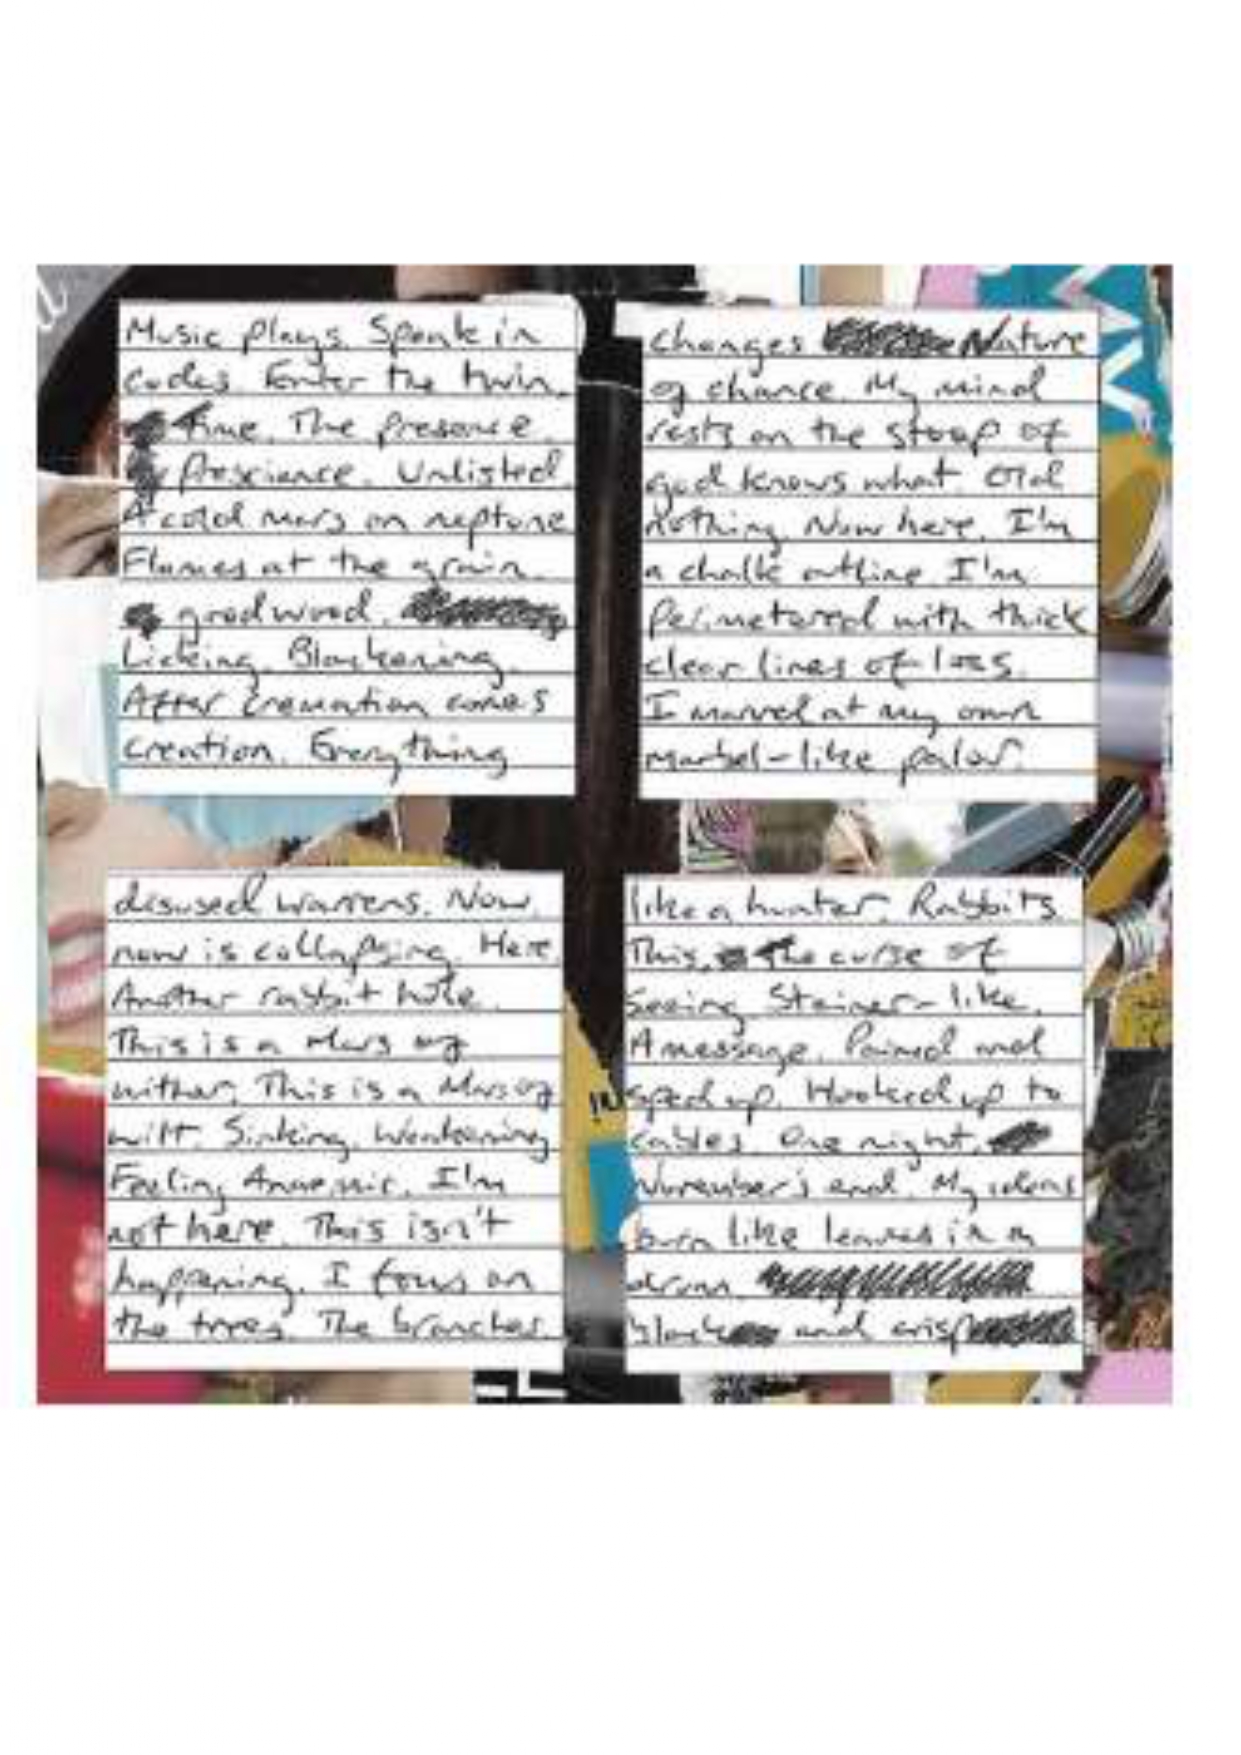 Music plays. Speak in
codes. Enter the twin.
time. The presence.
prescience. Unlisted
A cold mars on neptune
Flames at the grain.
good wood.
Licking. Blackening.
After cremation comes
creation. Everything
changes Nature
of chance. My mind
rests on the stoop of
god knows what. Old
nothing. Now here. I'm
a chalk outline. I'm
Perimetered with thick
clear lines of loss.
I marvel at my own
marbel-like palor.
disused warrens. Now,
now is collapsing. Here.
Another rabbit hole.
This is a Mars of
wither. This is a Mars of
wilt. Sinking. Weakening
Feeling Anaemic. I'm
not here. This isn't
happening. I focus on
the trees. The branches.
like a hunter. Rabbits.
This, the curse of
seeing Steiner-like.
A message. Paired and
sped up. Hooked up to
cables. One night.
November's end. My ideas
burn like leaves in a
drum.
black and crisp